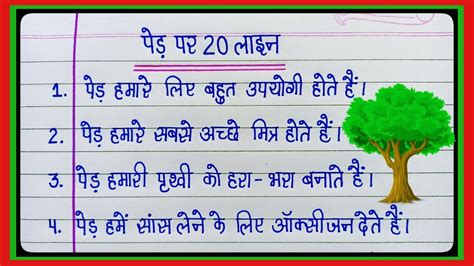 पेड़ पर 20 लाइन
1. पेड़ हमारे लिए बहुत उपयोगी होते हैं।
2. पेड़ हमारे सबसे अच्छे मित्र होते हैं।
3. पेड़ हमारी पृथ्वी को हरा-भरा बनाते हैं।
4. पेड़ हमें सांस लेने के लिए ऑक्सीजन देते हैं।